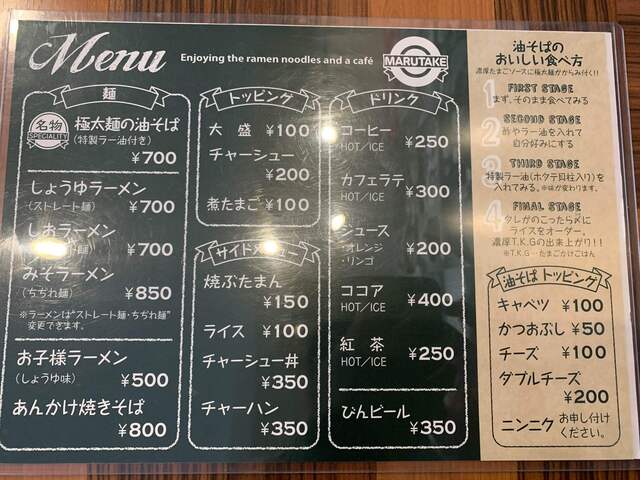 Menu
Enjoying the ramen noodles and a café
MARUTAKE
麺
名物
SPECIALITY
極太麺の油そば
(特製ラー油付き)
¥700
しょうゆラーメン
(ストレート麺) ¥700
しおラーメン
(ストレート麺) ¥700
みそラーメン
(ちぢれ麺) ¥850
※ラーメンは"ストレート麺・ちぢれ麺"
変更できます。
お子様ラーメン
(しょうゆ味) ¥500
あんかけ焼きそば
¥800
トッピング
大 盛 ¥100
チャーシュー
¥200
煮たまご ¥100
サイドメニュー
焼ぶたまん
¥150
ライス ¥100
チャーシュー丼
¥350
チャーハン
¥350
ドリンク
コーヒー
HOT/ICE ¥250
カフェラテ
HOT/ICE ¥300
ジュース
・オレンジ
・リンゴ
¥200
ココア
HOT/ICE ¥400
紅 茶
HOT/ICE ¥250
びんビール
¥350
油そばの
おいしい食べ方
濃厚たまごソースに極太麺がからみ付く!!
1 FIRST STAGE
まず、そのまま食べてみる
2 SECOND STAGE
酢やラー油を入れて
自分好みにする
3 THIRD STAGE
特製ラー油(ホタテ貝柱入り)を
入れてみる。※味が変わります。
4 FINAL STAGE
タレがのこったら〆に
ライスをオーダー。
濃厚T.K.Gの出来上がり!!
※T.K.G…たまごかけごはん
油そば トッピング
キャベツ ¥100
かつおぶし ¥50
チーズ ¥100
ダブルチーズ
¥200
ニンニク お申し付け
ください。